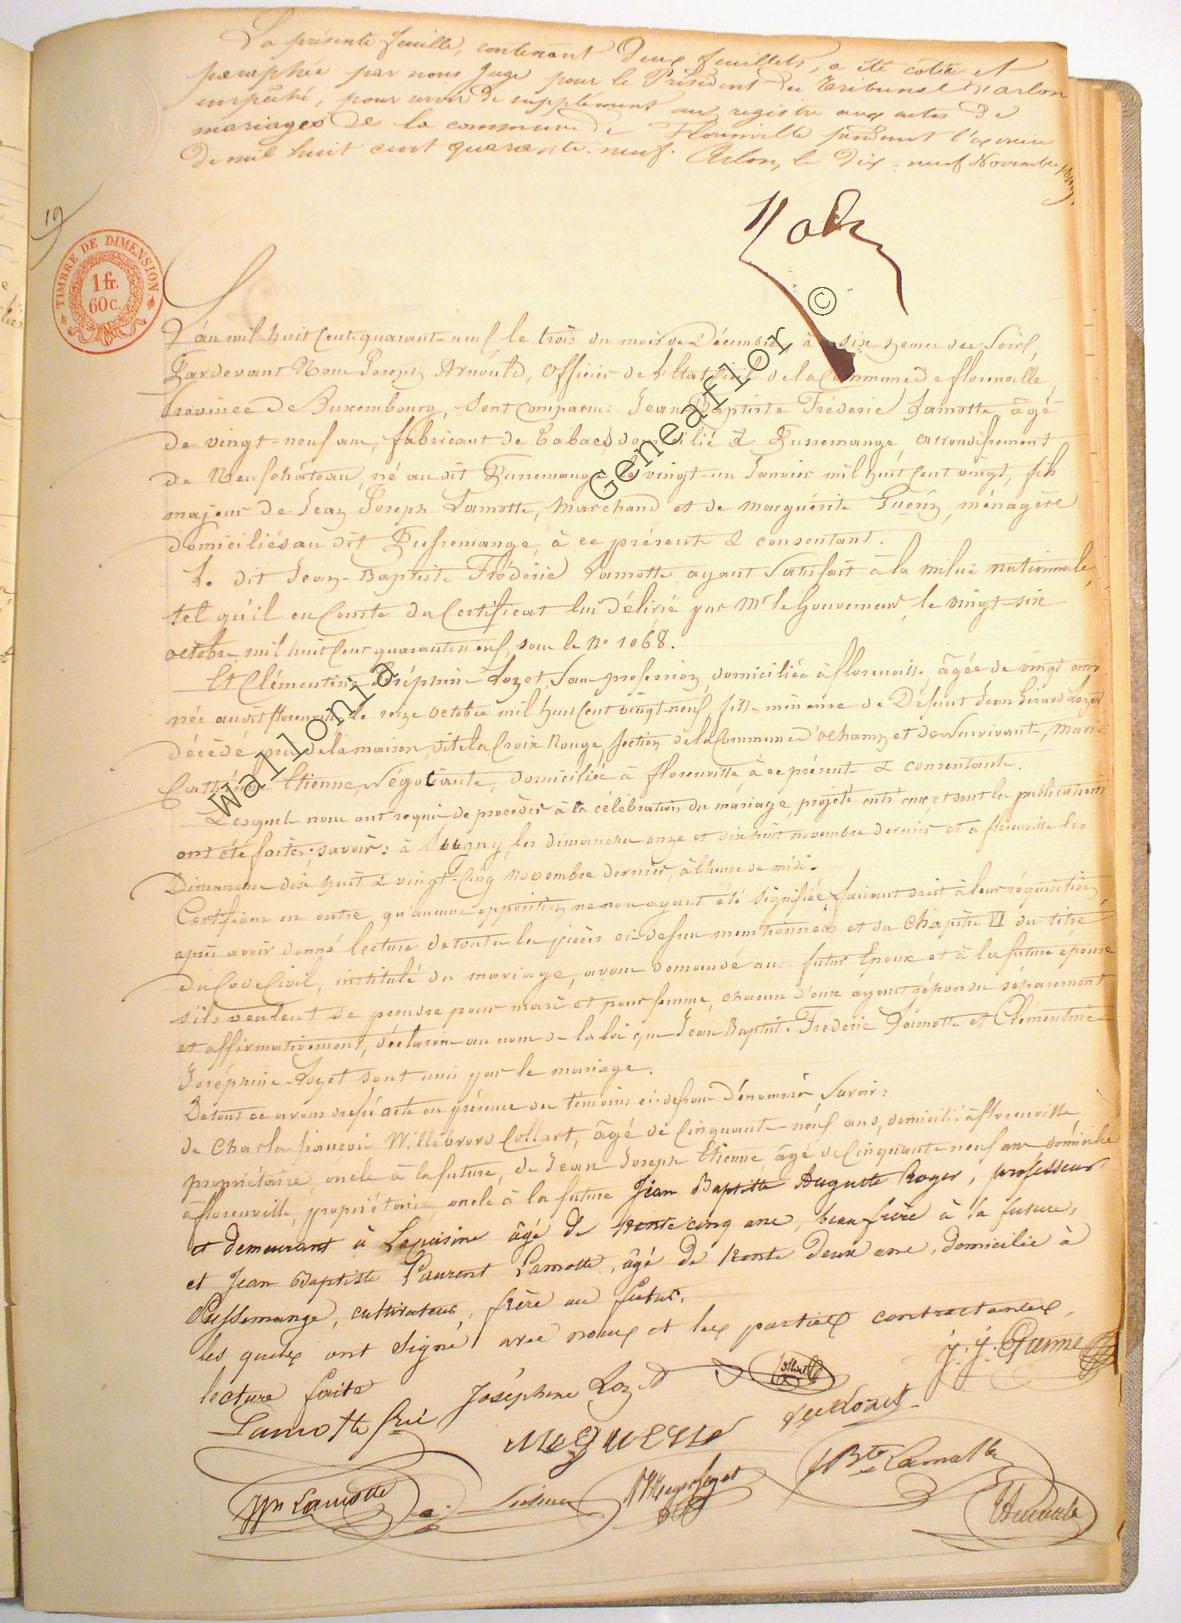 La présente feuille, contenant deux feuillets, a été cotée et
paraphée par nous Juge pour le Président du Tribunal d'arlon
empêché, pour servir de supplément au registre aux actes de
mariages de la commune de Florenville pendant l'exercice
de mil huit cent quarante-neuf. Arlon, le dix-neuf Novembre
19
TIMBRE DE DIMENSION
1 fr.
60c.
L'an mil huit cent quarante-neuf, le trois du mois de Décembre, à six heures du Soir,
Pardevant Nous Joseph Arnould, officier de l'État Civil de la Commune de florenville,
Province de Luxembourg, sont comparus: Jean Baptiste Fréderic Lamotte, âgé
de vingt-neuf ans, fabricant de Tabac, domicilié à Pussemange, arrondissement
de Neufchâteau, né au dit Pussemange le vingt-un Janvier mil huit cent vingt, fils
majeur de Jean Joseph Lamotte, Marchand et de Marguérite, ménagère
domiciliés au dit Pussemange, à ce présents & consentant.
Le dit Jean-Baptiste Fréderic Lamotte, ayant satisfait à la milice nationale,
tel qu'il en Conste du Certificat lui délivré par Mr le Gouverneur, le vingt-six
octobre mil huit cent quarante neuf, sous le No 1068.
Et Clémentine Joséphine Lozet, sans profession, domiciliée à florenville, âgée de vingt ans
née au dit florenville, le seize octobre mil huit cent vingt-neuf, fille mineure de Défunt Jean Gérard Lozet
décédé près de la maison dite la Croix Rouge, section de la Commune d'ochamp et de Survivante, Marie
Cathérine Etienne, Négociante, domiciliée à florenville, à ce présente & consentante.
Lesquels nous ont requis de procéder à la célébration du mariage, projeté entr'eux et dont les publications
ont été faites, savoir: à Sugny, les dimanches onze et dix huit novembre dernier, et à florenville les
Dimanches dix huit & vingt-cinq novembre dernier, à l'heure de midi.
Certifions en outre, qu'aucune opposition ne nous ayant été signifiée, faisant droit à leur réquisition,
après avoir donné lecture de toutes les pièces ci-dessus mentionnées et du chapitre VI du titre
du Code Civil, intitulé du mariage, avons demandé au futur Epoux et à la future épouse
s'ils veulent se prendre pour mari et pour femme, chacun d'eux ayant répondu séparément
et affirmativement, déclarons au nom de la loi que Jean Baptiste Fréderic Lamotte et Clémentine
Joséphine Lozet sont unis par le mariage.
De tout ce avons dressé acte en présence des témoins ci-dessous dénommés, savoir:
de Charles françois Willebrord Collart, âgé de Cinquante-neuf ans, domicilié à florenville
propriétaire, oncle à la future, de Jean Joseph Etienne, âgé de Cinquante neuf ans domicilié
à florenville, propriétaire, oncle à la future Jean Baptiste Auguste Roger, professeur
et demeurant à âgé de trente cinq ans, beau frère à la future,
et Jean Baptiste Laurent Lamotte, âgé de trente deux ans, domicilié à
Pussemange, cultivateur, frère au futur.
les quels ont signé avec nous et les parties contractantes,
lecture faite
Joséphine Lozet
Lamotte
Lamotte
JBte Lamotte
Wallonia Geneaflor ©